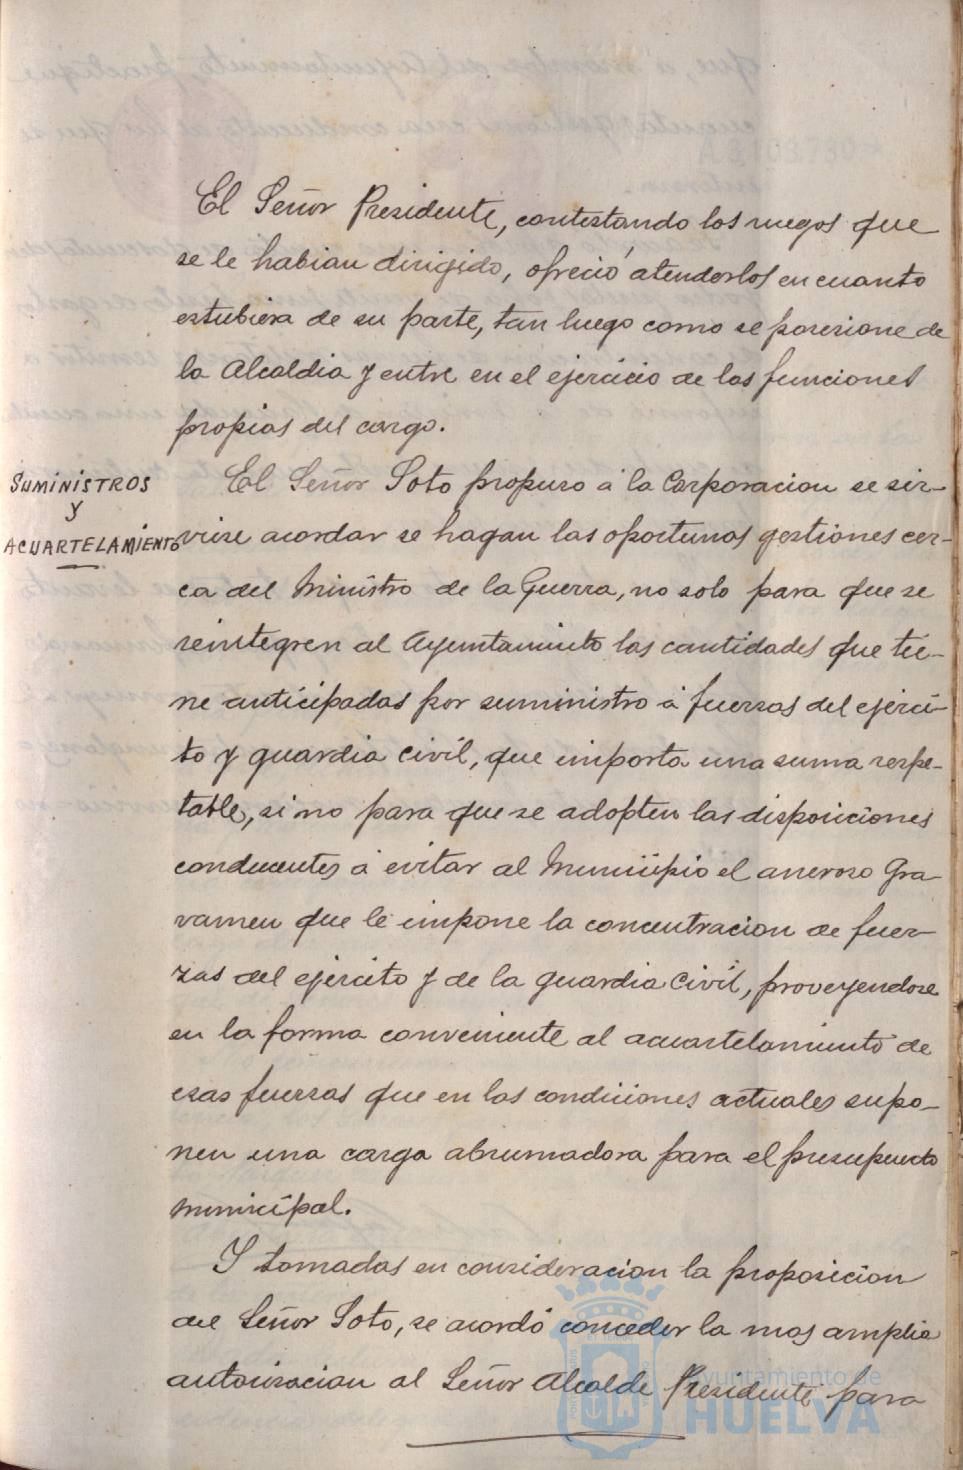 El Señor Presidente, contestando los ruegos que
se le habian dirigido, ofreció atenderlos en cuanto
estubiera de su parte, tan luego como se posesione de
la Alcaldia y entre en el ejercicio de las funciones
propias del cargo.
SUMINISTROS
Y
ACUARTELAMIENTO
El Señor Soto propuso á la Corporacion se sir-
viese acordar se hagan las oportunas gestiones cer-
ca del Ministro de la Guerra, no solo para que se
reintegren al Ayuntamiento las cantidades que tie-
ne anticipadas por suministro á fuerzas del ejérci-
to y guardia civil, que importa una suma respe-
table, si no para que se adopten las disposiciones
conducentes á evitar al Municipio el oneroso gra-
vamen que le impone la concentracion de fuer-
zas del ejército y de la guardia Civil, proveyendose
en la forma conveniente al acuartelamiento de
esas fuerzas que en las condiciones actuales supo-
nen una carga abrumadora para el presupuesto
municipal.
Y tomadas en consideracion la proposicion
del Señor Soto, se acordó conceder la mas amplia
autorizacion al Señor Alcalde Presidente para
Ayuntamiento de
HUELVA